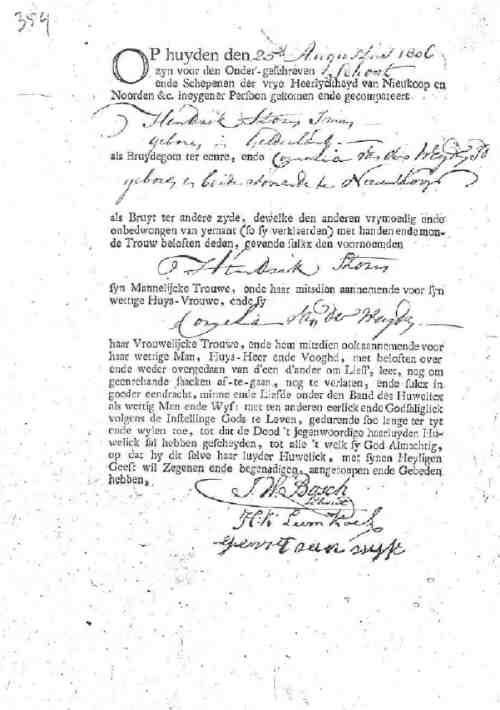 354
OP huyden den 25st Augustus 1806
zyn voor den Onder-geschreven Schout
ende Schepenen der vrye Heerlyckheyd van Nieukoop en
Noorden &c. ineygener Persoon gekomen ende gecompareert
Hendrik Storm
geboren in Gelderland
als Bruydegom ter eenre, ende Cornelia van der Weyde
geboren en beide wonende te
als Bruyt ter andere zyde, dewelke den anderen vrymoedig ende
onbedwongen van yemant (so sy verklaerden) met handen ende mon-
de Trouw beloften deden, gevende sulkx den voornoemden
Hendrik Storm
syn Mannelijcke Trouwe, onde haar mitsdien aannemende voor syn
wettige Huys-Vrouwe, ende sy
Cornelia van der Weyde
haar Vrouwelijcke Trouwe, ende hem mitsdien ook aannemende voor
haar wettige Man, Huys-Heer ende Vooghd, met beloften over
ende weder overgedaan van d'een d'ander om Lieff, leet, nog om
geenrehande saacken af-te-gaan, nog te verlaten, ende sulcx in
goeder eendracht, minne ende Liefde onder den Band des Huwelicx
als wettig Man ende Wyf; met ten anderen eerlick ende Godsaliglick
volgens de Instellinge Gods te Leven, gedurende soo lange ter tyt
ende wylen toe, tot dat de Dood 't jegenwoordige haarluyden Hu-
welick sal hebben gescheyden, tot alle 't welk sy God Almachtig,
op dat hy dit selve haar luyder Huwelick, met synen Heyligen
Geest wil Zegenen ende begenadigen, aangeroepen ende Gebeden
hebben.
J.W. Bosch
Schout
H.k. Lumkoek
Gerrit van wijk